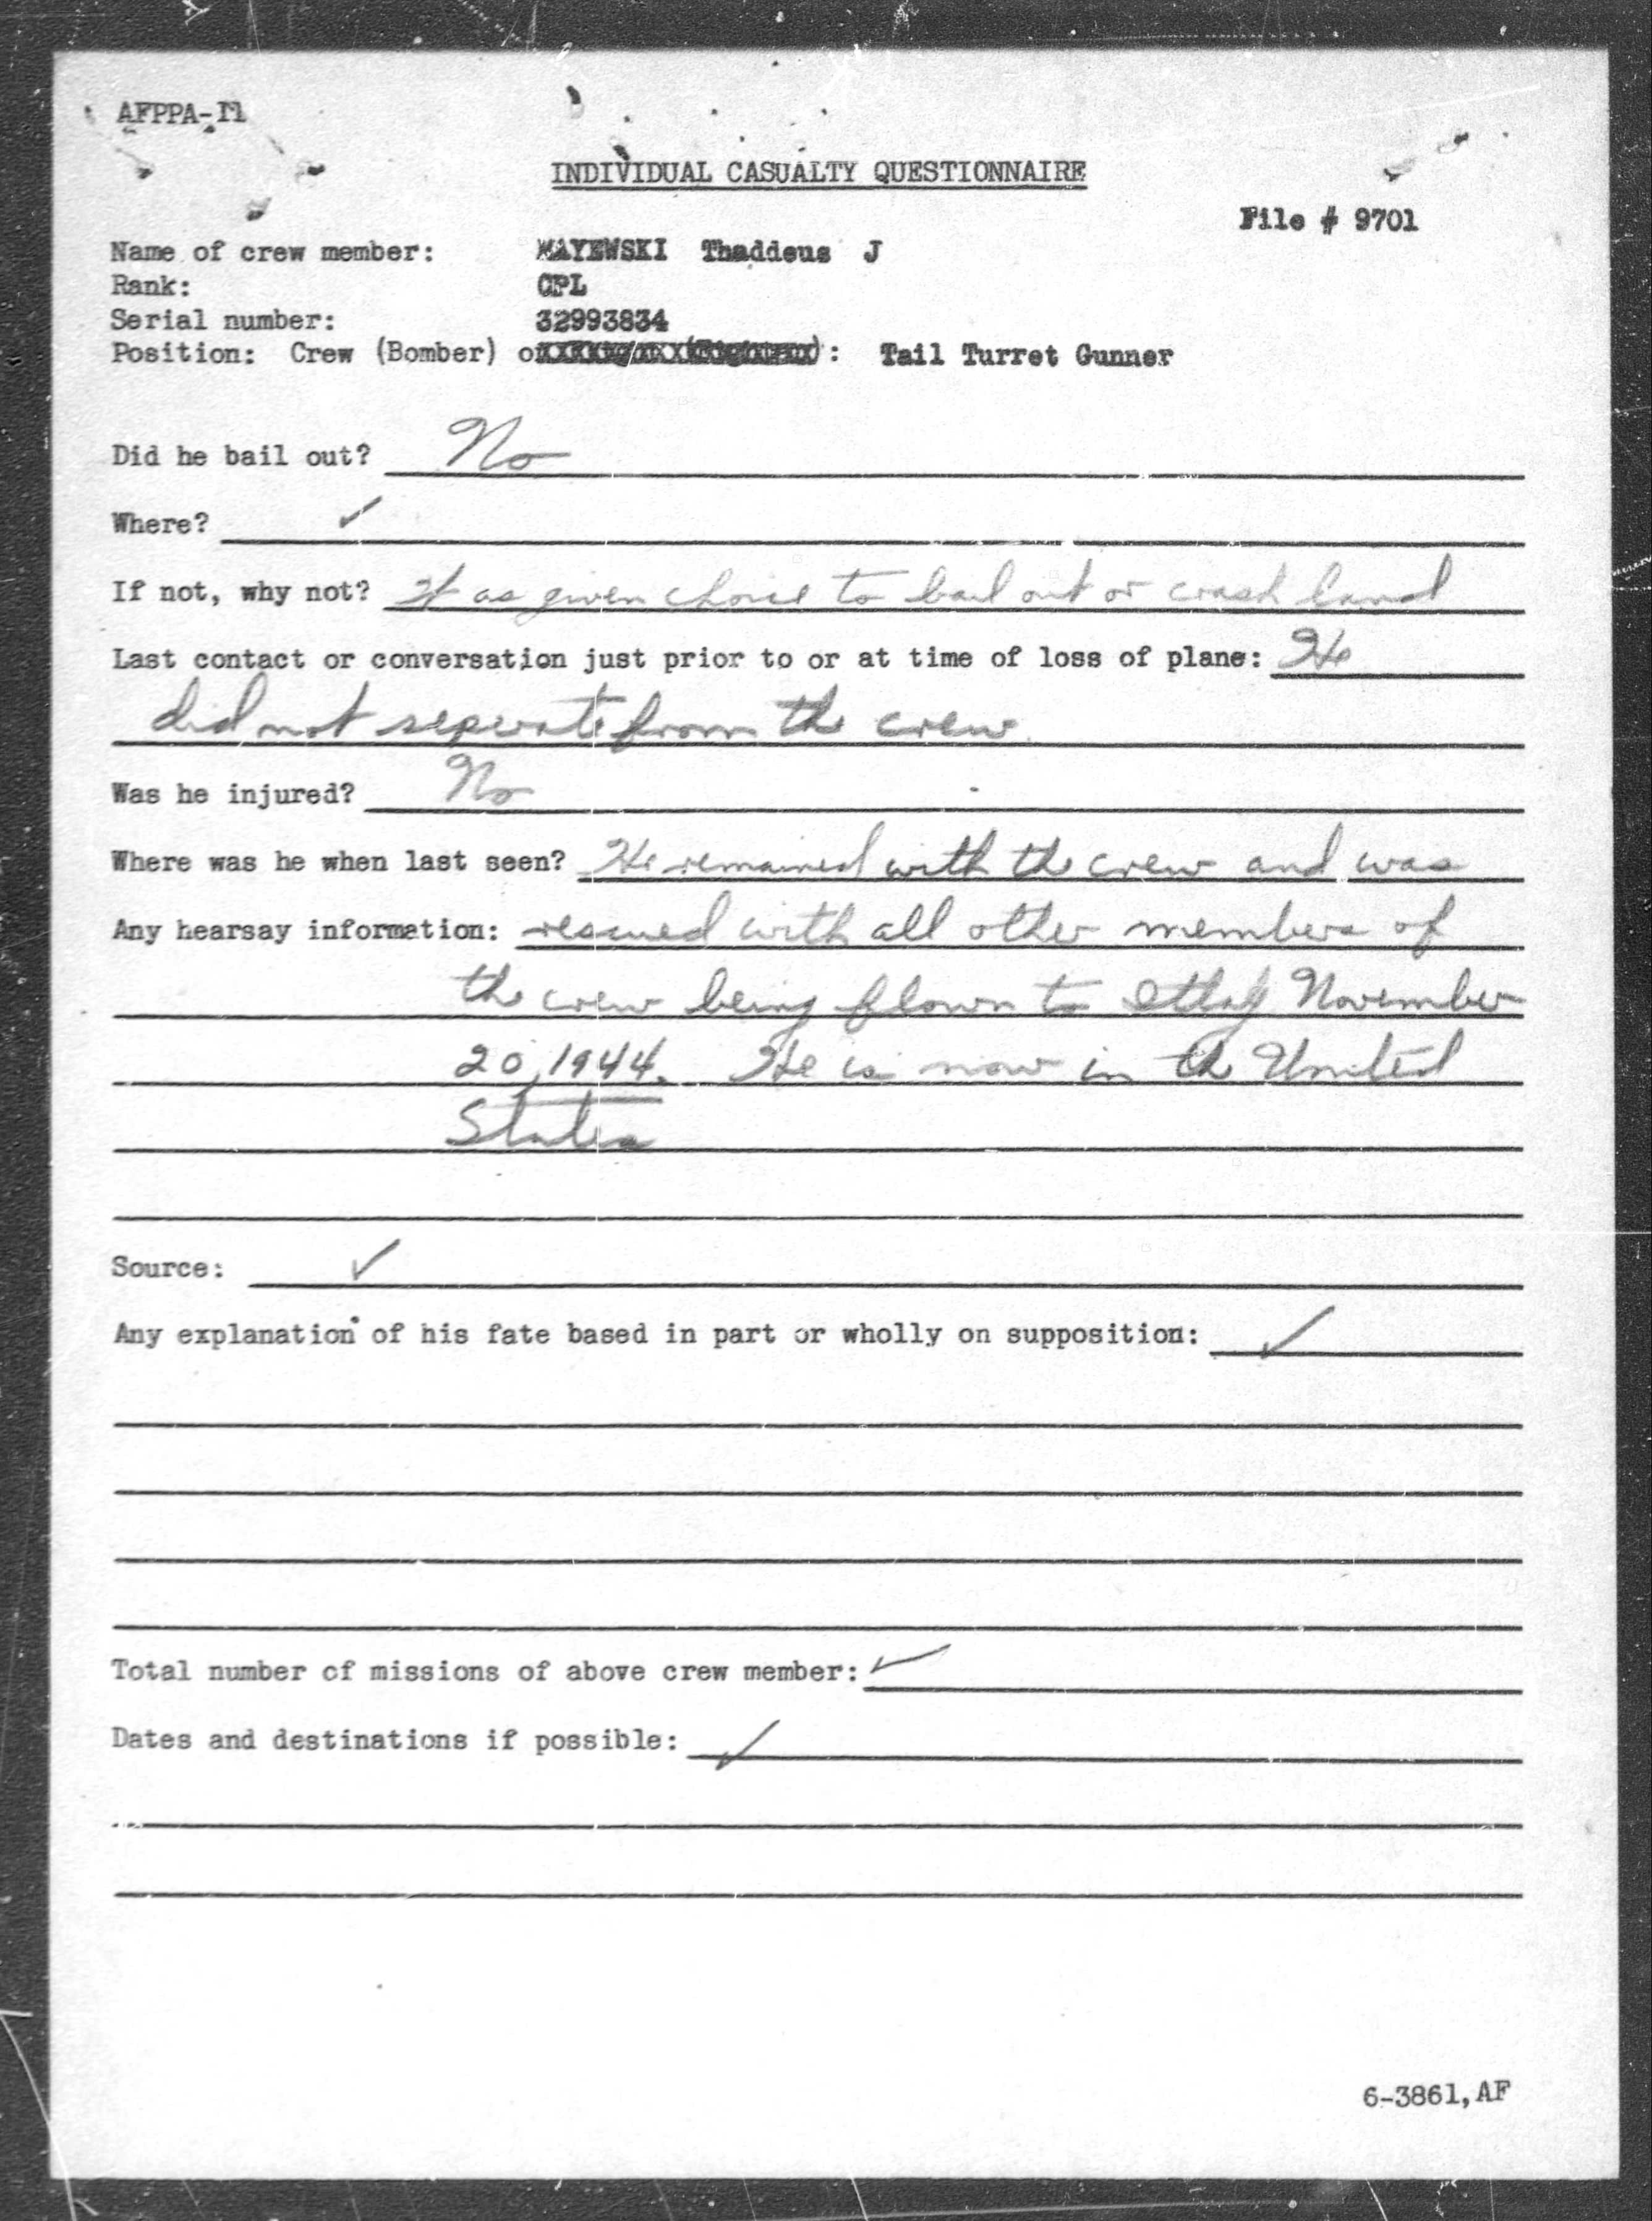 AFPPA-11
INDIVIDUAL CASUALTY QUESTIONNAIRE
File # 9701
Name of crew member: MAYEWSKI Thaddeus J
Rank: CPL
Serial number: 32993834
Position: Crew (Bomber) o : Tail Turret Gunner
Did he bail out? No
Where? ✓
If not, why not? as given choice to bail out or crash land
Last contact or conversation just prior to or at time of loss of plane: He
did not seperate from the crew
Was he injured? No
Where was he when last seen? He remained with the crew and was
Any hearsay information: rescued with all other members of
the crew being flown to November
20, 1944. He is now in the United
States
Source: ✓
Any explanation of his fate based in part or wholly on supposition: ✓
Total number of missions of above crew member: ✓
Dates and destinations if possible: ✓
6-3861,AF